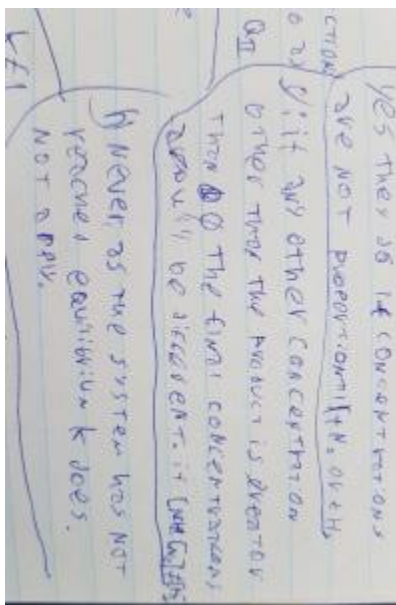 Yes they do if concentrations
are not proportional (N₂ or H₂
g) if any other concentration
other than the product is greator
than 0 the final concentrations
be different. if
h) Never, as the system has not
reached equilibrium k does
not apply.
CTION
QII
k≠1